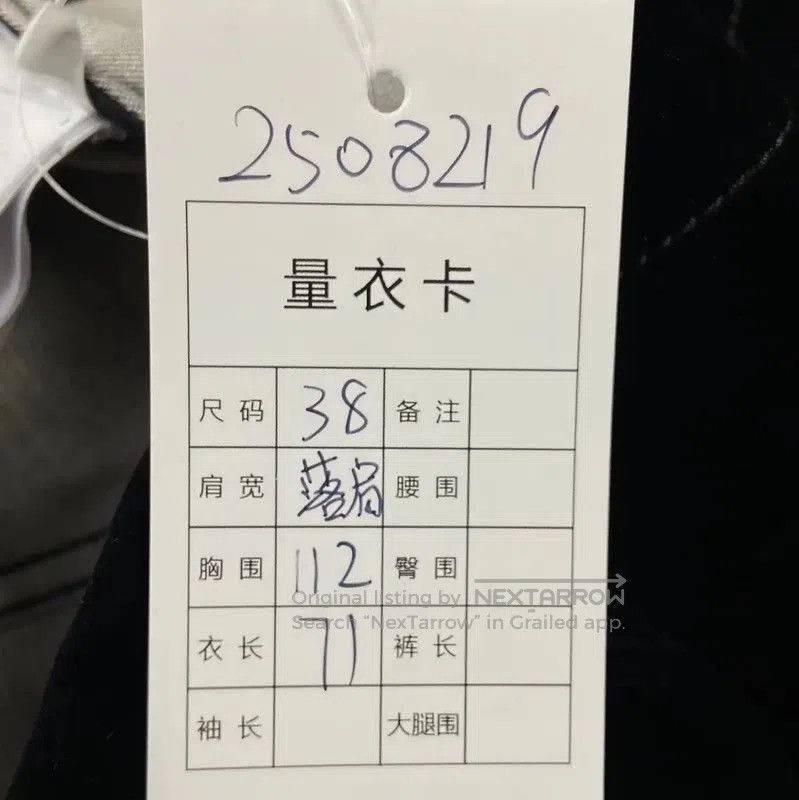 2508219
量衣卡
尺码 38 备注
肩宽 落肩 腰围
胸围 112 臀围
Original listing by NEXTARROW
衣长 71 裤长
Search "NexTarrow" in Grailed app.
袖长 大腿围